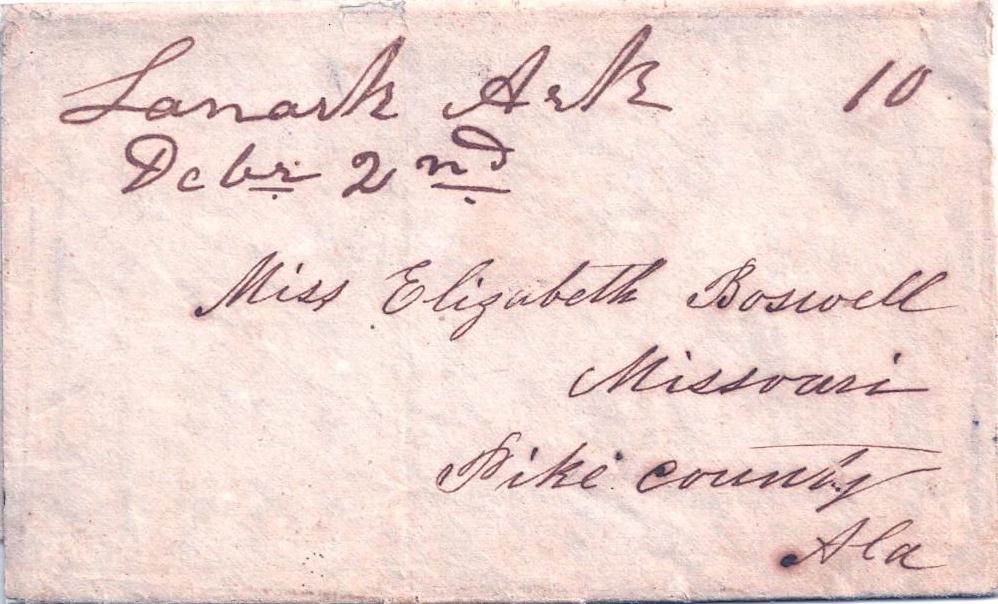 Lanark Ark 10
Decbr 2nd
Miss Elizabeth Boswell
Missouri
Pike county
Ala